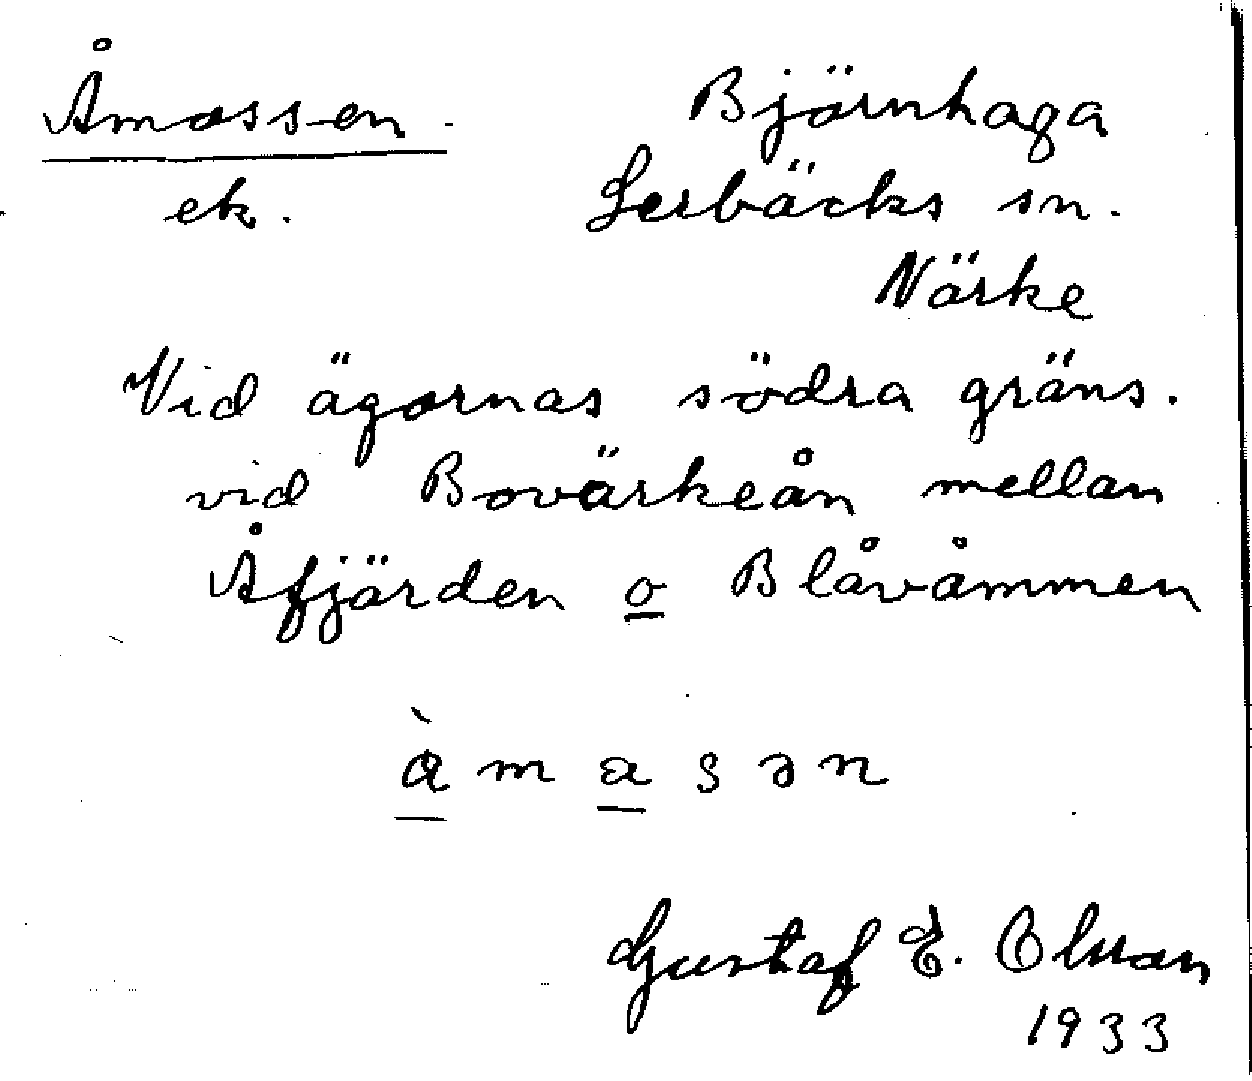 Åmossen.
ek.
Björnhaga
Lerbäcks sn.
Närke
Vid ägornas södra gräns.
vid Bovärkeån mellan
Åfjärden o Blåvåmmen
àmasən
Gustaf E. Olsson
1933